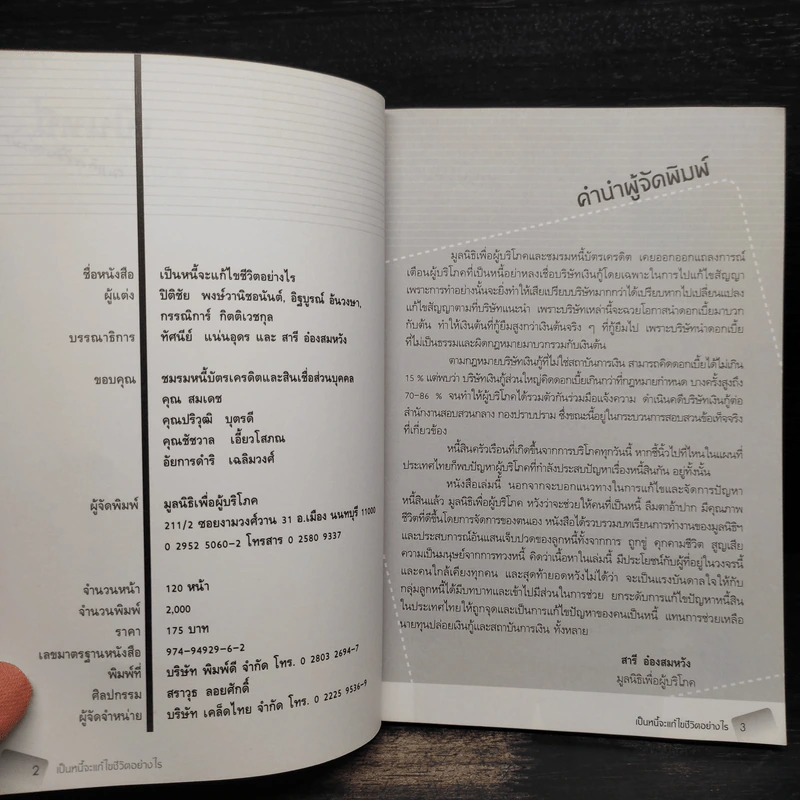 ชื่อหนังสือ เป็นหนี้จะแก้ไขชีวิตอย่างไร
ผู้แต่ง ปิติชัย พงษ์วานิชอนันต์, อิฐบูรณ์ อ้นวงษา,
กรรณิการ์ กิตติเวชกุล
บรรณาธิการ ทัศนีย์ แน่นอุดร และ สารี อ๋องสมหวัง
ขอบคุณ ชมรมหนี้บัตรเครดิตและสินเชื่อส่วนบุคคล
คุณ สมเดช
คุณปริวุฒิ บุตรดี
คุณชัชวาล เอี้ยวโสภณ
อัยการดำริ เฉลิมวงศ์
ผู้จัดพิมพ์ มูลนิธิเพื่อผู้บริโภค
211/2 ซอยงามวงศ์วาน 31 อ.เมือง นนทบุรี 11000
0 2952 5060-2 โทรสาร 0 2580 9337
จำนวนหน้า 120 หน้า
จำนวนพิมพ์ 2,000
ราคา 175 บาท
เลขมาตรฐานหนังสือ 974-94929-6-2
พิมพ์ที่ บริษัท พิมพ์ดี จำกัด โทร. 0 2803 2694-7
ศิลปกรรม สราวุธ ลอยศักดิ์
ผู้จัดจำหน่าย บริษัท เคล็ดไทย จำกัด โทร. 0 2225 9536-9
2 เป็นหนี้จะแก้ไขชีวิตอย่างไร
คำนำผู้จัดพิมพ์
มูลนิธิเพื่อผู้บริโภคและชมรมหนี้บัตรเครดิต เคยออกออกแถลงการณ์
เตือนผู้บริโภคที่เป็นหนี้อย่าหลงเชื่อบริษัทเงินกู้โดยเฉพาะในการไปแก้ไขสัญญา
เพราะการทำอย่างนั้นจะยิ่งทำให้เสียเปรียบบริษัทมากกว่าได้เปรียบหากไปเปลี่ยนแปลง
แก้ไขสัญญาตามที่บริษัทแนะนำ เพราะบริษัทเหล่านี้จะฉวยโอกาสนำดอกเบี้ยมาบวก
กับต้น ทำให้เงินต้นที่กู้ยืมสูงกว่าเงินต้นจริง ๆ ที่กู้ยืมไป เพราะบริษัทนำดอกเบี้ย
ที่ไม่เป็นธรรมและผิดกฎหมายมาบวกรวมกับเงินต้น
ตามกฎหมายบริษัทเงินกู้ที่ไม่ใช่สถาบันการเงิน สามารถคิดดอกเบี้ยได้ไม่เกิน
15 % แต่พบว่า บริษัทเงินกู้ส่วนใหญ่คิดดอกเบี้ยเกินกว่าที่กฎหมายกำหนด บางครั้งสูงถึง
70-86 % จนทำให้ผู้บริโภคได้รวมตัวกันร่วมมือแจ้งความ ดำเนินคดีบริษัทเงินกู้ต่อ
สำนักงานสอบสวนกลาง กองปราบปราม ซึ่งขณะนี้อยู่ในกระบวนการสอบสวนข้อเท็จจริง
ที่เกี่ยวข้อง
หนี้สินครัวเรือนที่เกิดขึ้นจากการบริโภคทุกวันนี้ หากชี้นิ้วไปที่ไหนในแผนที่
ประเทศไทยก็พบปัญหาผู้บริโภคที่กำลังประสบปัญหาเรื่องหนี้สินกัน อยู่ทั้งนั้น
หนังสือเล่มนี้ นอกจากจะบอกแนวทางในการแก้ไขและจัดการปัญหา
หนี้สินแล้ว มูลนิธิเพื่อผู้บริโภค หวังว่าจะช่วยให้คนที่เป็นหนี้ ลืมตาอ้าปาก มีคุณภาพ
ชีวิตที่ดีขึ้นโดยการจัดการของตนเอง หนังสือได้รวบรวมบทเรียนการทำงานของมูลนิธิฯ
และประสบการณ์อันแสนเจ็บปวดของลูกหนี้ทั้งจากการ ถูกขู่ คุกคามชีวิต สูญเสีย
ความเป็นมนุษย์จากการทวงหนี้ คิดว่าเนื้อหาในเล่มนี้ มีประโยชน์กับผู้ที่อยู่ในวงจรนี้
และคนใกล้เคียงทุกคน และสุดท้ายอดหวังไม่ได้ว่า จะเป็นแรงบันดาลใจให้กับ
กลุ่มลูกหนี้ได้มีบทบาทและเข้าไปมีส่วนในการช่วย ยกระดับการแก้ไขปัญหาหนี้สิน
ในประเทศไทยให้ถูกจุดและเป็นการแก้ไขปัญหาของคนเป็นหนี้ แทนการช่วยเหลือ
นายทุนปล่อยเงินกู้และสถาบันการเงิน ทั้งหลาย
สารี อ๋องสมหวัง
มูลนิธิเพื่อผู้บริโภค
เป็นหนี้จะแก้ไขชีวิตอย่างไร 3